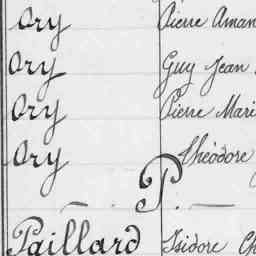 Ory Pierre Aman
Ory Guy Jean
Ory Pierre Mari
Ory Théodore
P.
Paillard Isidore Ch